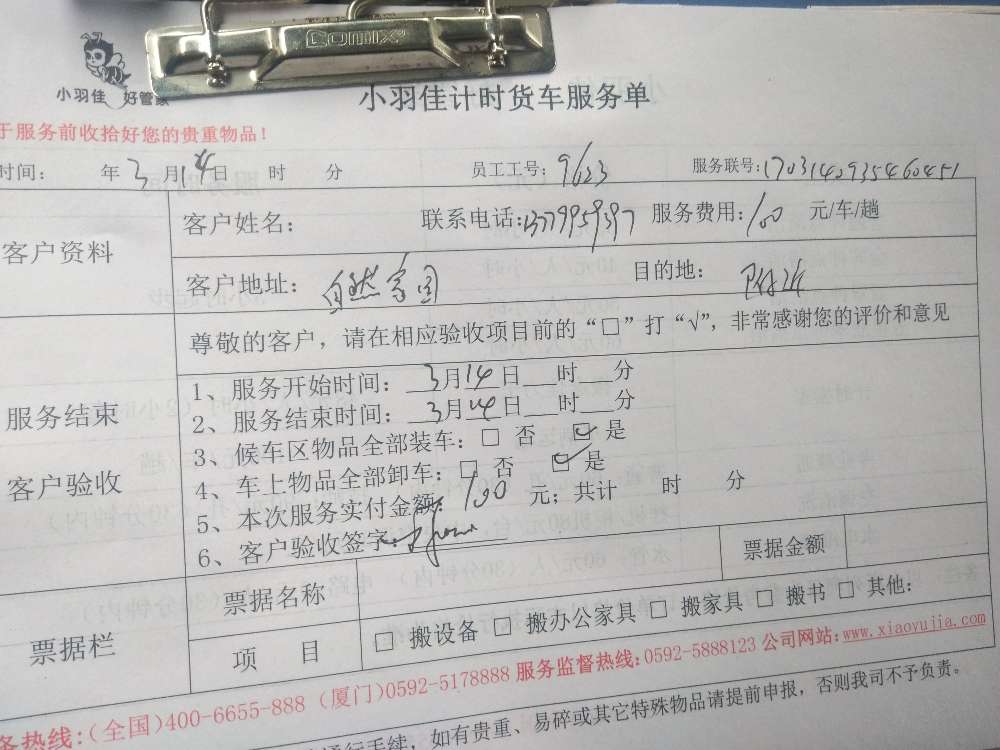 COMIX
小羽佳 好管家
小羽佳计时货车服务单
于服务前收拾好您的贵重物品！
时间： 年3月14日 时 分 员工工号：9623 服务联号：1703140935460451
客户资料
客户姓名： 联系电话：13779959397 服务费用：100 元/车/趟
客户地址：自然家园 目的地：附近
尊敬的客户，请在相应验收项目前的“□”打“√”，非常感谢您的评价和意见
服务结束
客户验收
1、服务开始时间：3月14日___时___分
2、服务结束时间：3月14日___时___分
3、候车区物品全部装车：□ 否 ☑ 是
4、车上物品全部卸车：□ 否 ☑ 是
5、本次服务实付金额：100 元；共计 时 分
6、客户验收签字：
票据栏
票据名称 票据金额
项 目 □ 搬设备 □ 搬办公家具 □ 搬家具 □ 搬书 □ 其他：
务热线：（全国）400-6655-888（厦门）0592-5178888 服务监督热线：0592-5888123 公司网站：www.xiaoyujia.com
通行手续，如有贵重、易碎或其它特殊物品请提前申报，否则我司不予负责。